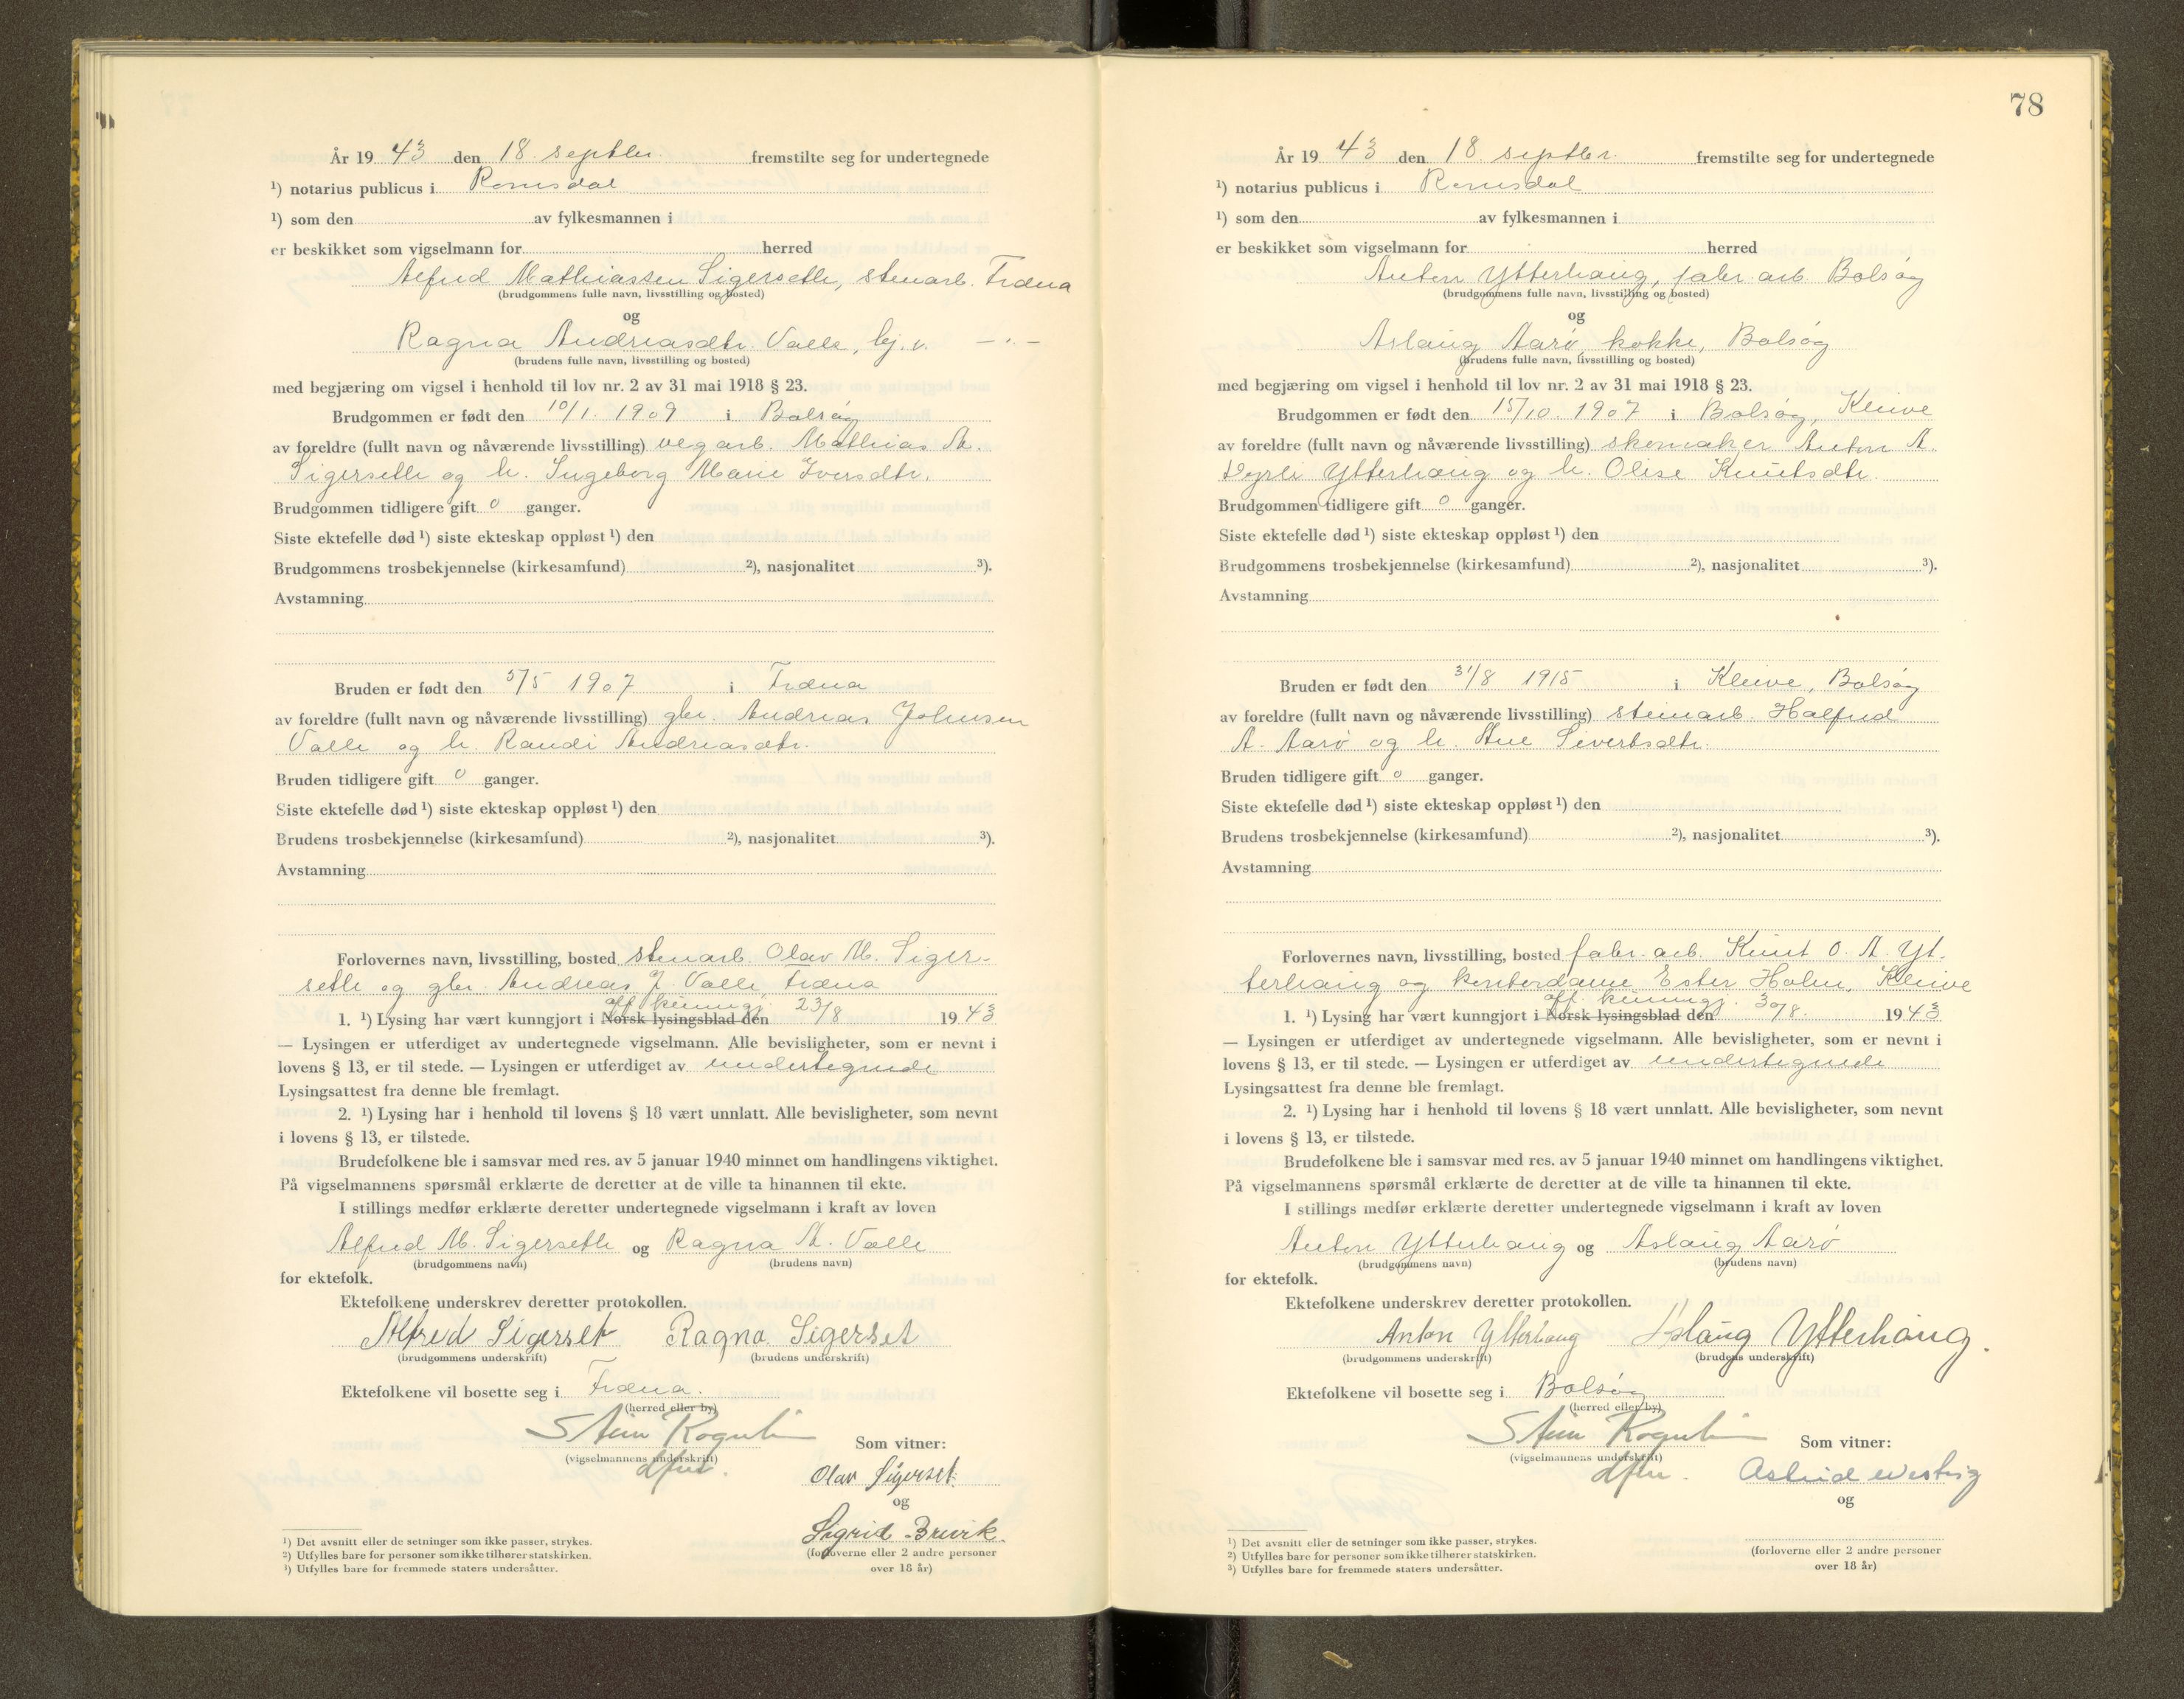 År 19 43 den 18. septbr. fremstilte seg for undertegnede
¹) notarius publicus i Romsdal
¹) som den av fylkesmannen i
er beskikket som vigselmann for herred
Alfred Mathiassen Sigerseth, stenarb. Fræna
(brudgommens fulle navn, livsstilling og bosted)
og
Ragna Andreasdtr. Valle, hj.v. — " —
(brudens fulle navn, livsstilling og bosted)
med begjæring om vigsel i henhold til lov nr. 2 av 31 mai 1918 § 23.
Brudgommen er født den 10/1. 1909 i Bolsøy
av foreldre (fullt navn og nåværende livsstilling) vegarb. Mathias A.
Sigerseth og h. Ingeborg Marie Iversdtr.
Brudgommen tidligere gift 0 ganger.
Siste ektefelle død ¹) siste ekteskap oppløst ¹) den
Brudgommens trosbekjennelse (kirkesamfund) ²), nasjonalitet ³).
Avstamning
Bruden er født den 5/5 1907 i Fræna
av foreldre (fullt navn og nåværende livsstilling) gbr. Andreas Johnsen
Valle og h. Randi Andreasdtr.
Bruden tidligere gift 0 ganger.
Siste ektefelle død ¹) siste ekteskap oppløst ¹) den
Brudens trosbekjennelse (kirkesamfund) ²), nasjonalitet ³).
Avstamning
Forlovernes navn, livsstilling, bosted stenarb. Olav M. Siger-
seth og gbr. Andreas J. Valle, Fræna
off. kunngj.
1. ¹) Lysing har vært kunngjort i Norsk lysingsblad den 23/8 19 43
— Lysingen er utferdiget av undertegnede vigselmann. Alle bevisligheter, som er nevnt i
lovens § 13, er til stede. — Lysingen er utferdiget av undertegnede
Lysingsattest fra denne ble fremlagt.
2. ¹) Lysing har i henhold til lovens § 18 vært unnlatt. Alle bevisligheter, som nevnt
i lovens § 13, er tilstede.
Brudefolkene ble i samsvar med res. av 5 januar 1940 minnet om handlingens viktighet.
På vigselmannens spørsmål erklærte de deretter at de ville ta hinannen til ekte.
I stillings medfør erklærte deretter undertegnede vigselmann i kraft av loven
Alfred M. Sigerseth og Ragna A. Valle
(brudgommens navn) (brudens navn)
for ektefolk.
Ektefolkene underskrev deretter protokollen.
Alfred Sigerset Ragna Sigerset
(brudgommens underskrift) (brudens underskrift)
Ektefolkene vil bosette seg i Fræna.
(herred eller by)
Som vitner:
(vigselmannens underskrift)
Olav Sigerset
og
Sigrid Brevik
(forloverne eller 2 andre personer
over 18 år)
¹) Det avsnitt eller de setninger som ikke passer, strykes.
²) Utfylles bare for personer som ikke tilhører statskirken.
³) Utfylles bare for fremmede staters undersåtter.
78
År 19 43 den 18. septbr. fremstilte seg for undertegnede
¹) notarius publicus i Romsdal
¹) som den av fylkesmannen i
er beskikket som vigselmann for herred
Anton Ytterhaug, fabr. arb. Bolsøy
(brudgommens fulle navn, livsstilling og bosted)
og
Aslaug Aarø, kokke, Bolsøy
(brudens fulle navn, livsstilling og bosted)
med begjæring om vigsel i henhold til lov nr. 2 av 31 mai 1918 § 23.
Brudgommen er født den 15/10. 1907 i Bolsøy, Kleive
av foreldre (fullt navn og nåværende livsstilling) skomaker Anton A.
Ytterhaug og h. Olise Knutsdtr.
Brudgommen tidligere gift 0 ganger.
Siste ektefelle død ¹) siste ekteskap oppløst ¹) den
Brudgommens trosbekjennelse (kirkesamfund) ²), nasjonalitet ³).
Avstamning
Bruden er født den 31/8 1915 i Kleive, Bolsøy
av foreldre (fullt navn og nåværende livsstilling) steinarb. Halfred
A. Aarø og h. Ane Sivertsdtr.
Bruden tidligere gift 0 ganger.
Siste ektefelle død ¹) siste ekteskap oppløst ¹) den
Brudens trosbekjennelse (kirkesamfund) ²), nasjonalitet ³).
Avstamning
Forlovernes navn, livsstilling, bosted fabr. arb. Knut O. A. Yt-
terhaug og kontordame Ester Holm, Kleive
off. kunngj.
1. ¹) Lysing har vært kunngjort i Norsk lysingsblad den 30/8. 19 43
— Lysingen er utferdiget av undertegnede vigselmann. Alle bevisligheter, som er nevnt i
lovens § 13, er til stede. — Lysingen er utferdiget av undertegnede
Lysingsattest fra denne ble fremlagt.
2. ¹) Lysing har i henhold til lovens § 18 vært unnlatt. Alle bevisligheter, som nevnt
i lovens § 13, er tilstede.
Brudefolkene ble i samsvar med res. av 5 januar 1940 minnet om handlingens viktighet.
På vigselmannens spørsmål erklærte de deretter at de ville ta hinannen til ekte.
I stillings medfør erklærte deretter undertegnede vigselmann i kraft av loven
Anton Ytterhaug og Aslaug Aarø
(brudgommens navn) (brudens navn)
for ektefolk.
Ektefolkene underskrev deretter protokollen.
Anton Ytterhaug Aslaug Ytterhaug.
(brudgommens underskrift) (brudens underskrift)
Ektefolkene vil bosette seg i Bolsøy
(herred eller by)
Som vitner:
(vigselmannens underskrift)
Astrid
og
(forloverne eller 2 andre personer
over 18 år)
¹) Det avsnitt eller de setninger som ikke passer, strykes.
²) Utfylles bare for personer som ikke tilhører statskirken.
³) Utfylles bare for fremmede staters undersåtter.